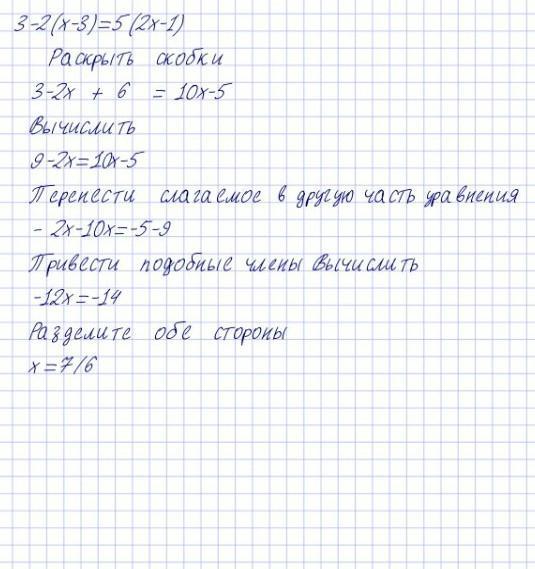 3-2(x-3)=5(2x-1)
Раскрыть скобки
3-2x + 6 = 10x-5
Вычислить
9-2x=10x-5
Перенести слагаемое в другую часть уравнения
- 2x-10x=-5-9
Привести подобные члены Вычислить
-12x=-14
Разделите обе стороны
x=7/6